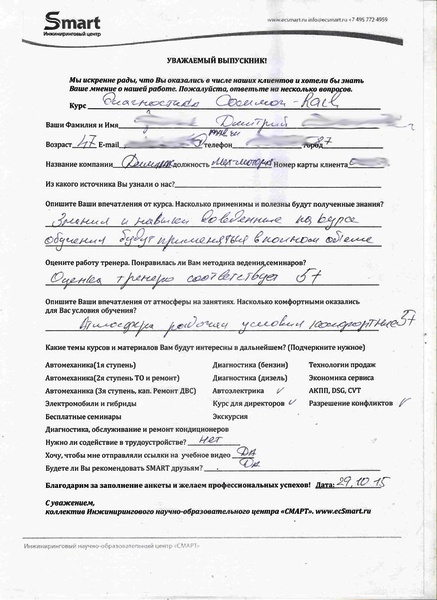 Smart
Инжиниринговый центр
www.ecsmart.ru info@ecsmart.ru +7 495 772 4959
УВАЖАЕМЫЙ ВЫПУСКНИК!
Мы искренне рады, что Вы оказались в числе наших клиентов и хотели бы знать
Ваше мнение о нашей работе. Пожалуйста, ответьте на несколько вопросов.
Курс Диагностика Common-Rail
Ваши Фамилия и Имя Дмитрий
Возраст 47 E-mail Телефон город
Название компании должность Номер карты клиента
Из какого источника Вы узнали о нас?
Опишите Ваши впечатления от курса. Насколько применимы и полезны будут полученные знания?
Знания и навыки доведенные на курсе
обучения будут применяться в полном объеме
Оцените работу тренера. Понравилась ли Вам методика ведения,семинаров?
Оценка тренера соответствует 5+
Опишите Ваши впечатления от атмосферы на занятиях. Насколько комфортными оказались
для Вас условия обучения?
Атмосфера рабочая условия комфортные 5+
Какие темы курсов и материалов Вам будут интересны в дальнейшем? (Подчеркните нужное)
Автомеханика(1я ступень) Диагностика (бензин) Технологии продаж
Автомеханика(2я ступень ТО и ремонт) Диагностика (дизель) Экономика сервиса
Автомеханика (3я ступень, кап. Ремонт ДВС) Автоэлектрика ✓ АКПП, DSG, CVT
Электромобили и гибриды Курс для директоров ✓ Разрешение конфликтов ✓
Бесплатные семинары Экскурсия
Диагностика, обслуживание и ремонт кондиционеров
Нужно ли содействие в трудоустройстве? нет
Хочу, чтобы мне отправляли ссылки на учебное видео Да
Будете ли Вы рекомендовать SMART друзьям? Да
Благодарим за заполнение анкеты и желаем профессиональных успехов! Дата: 29.10.15
С уважением,
коллектив Инжинирингового научно-образовательного центра «СМАРТ». www.ecSmart.ru
Инжиниринговый научно-образовательный центр «СМАРТ»